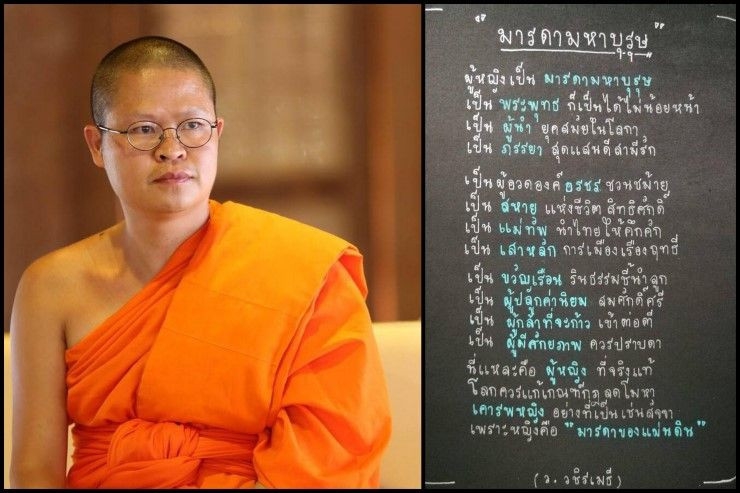 "มารดามหาบุรุษ"
ผู้หญิงเป็น มารดามหาบุรุษ
เป็น พระพุทธ ก็เป็นได้ไม่น้อยหน้า
เป็น ผู้นำ ยุคสมัยในโลกา
เป็น ภรรยา สุดแสนดีสามีรัก
เป็นผู้อวดองค์อรชร ชวนชม้าย
เป็น สหาย แห่งชีวิต สิทธิศักดิ์
เป็น แม่ทัพ นำไทยให้คึกคัก
เป็น เสาหลัก การเมืองเรืองฤทธิ์
เป็น ขวัญเรือน รินธรรมชี้นำลูก
เป็น ผู้ปลูกค่านิยม สมศักดิ์ศรี
เป็น ผู้กล้าที่จะก้าว เข้าต่อตี
เป็น ผู้มีศักยภาพ ควรปราบดา
ที่แหละคือ ผู้หญิง ที่จริงแท้
โลกควรแก้เกณฑ์กฎลดโมหา
เคารพหญิง อย่างที่เป็นเช่นสัจจา
เพราะหญิงคือ "มารดาของแผ่นดิน"
(ว. วชิรเมธี)